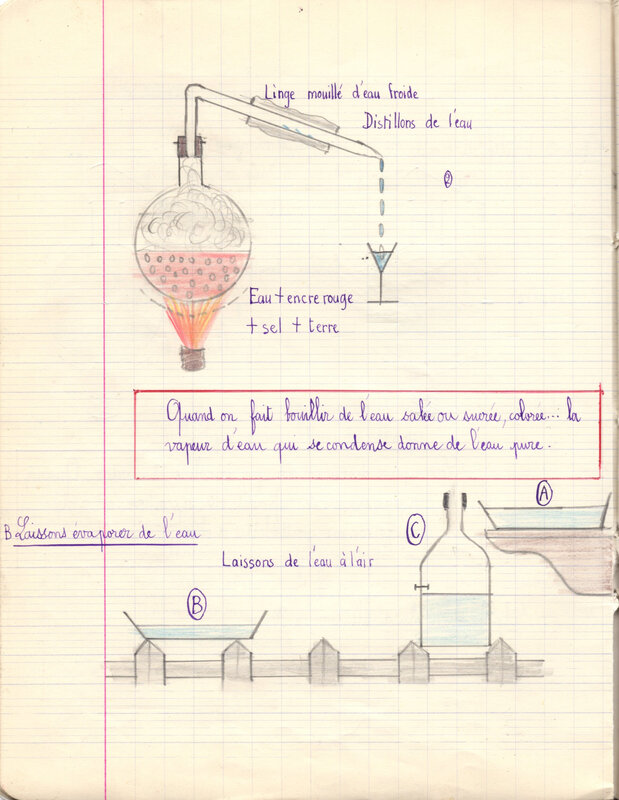 Linge mouillé d'eau froide
Distillons de l'eau
②
Eau + encre rouge
+ sel + terre
Quand on fait bouillir de l'eau salée ou sucrée, colorée... la
vapeur d'eau qui se condense donne de l'eau pure.
A
B Laissons évaporer de l'eau
C
Laissons de l'eau à l'air
B